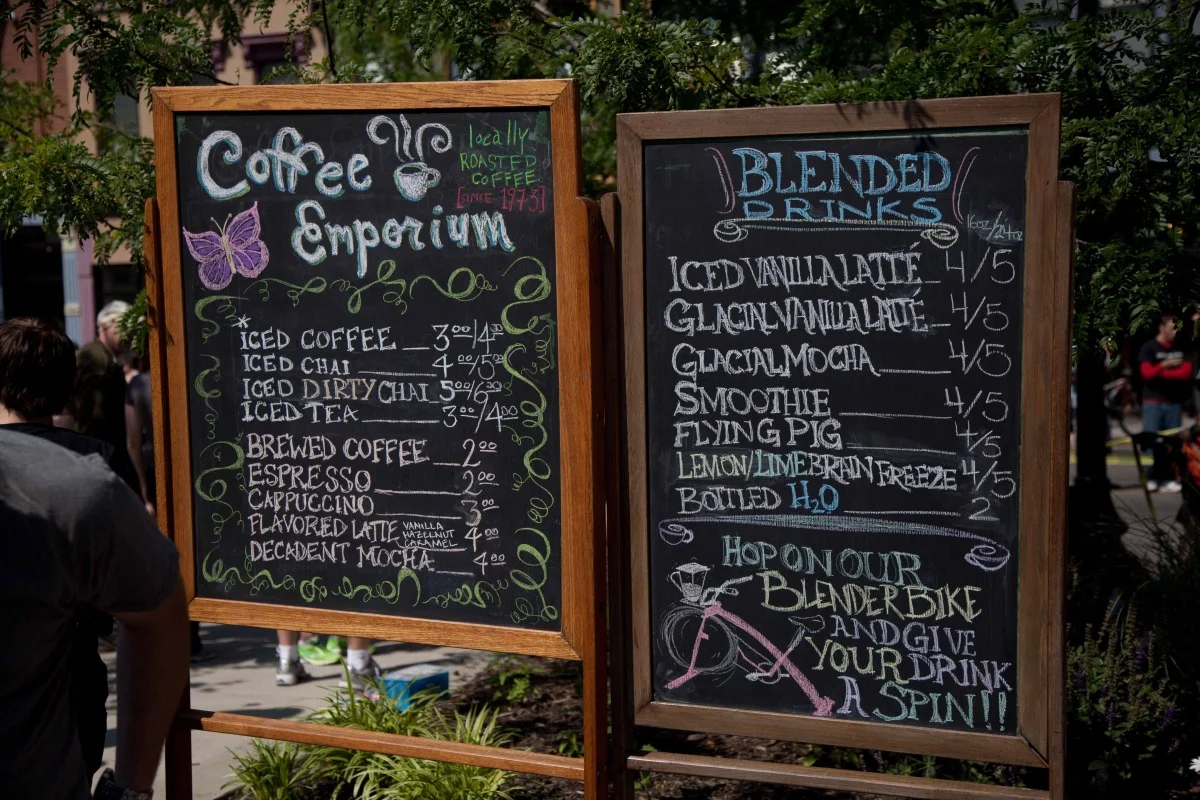 Coffee
Emporium
locally
ROASTED
COFFEE
[SINCE 1973]
*
ICED COFFEE 3⁰⁰/4⁰⁰
ICED CHAI 4⁰⁰/5⁰⁰
ICED DIRTY CHAI 5⁰⁰/6⁰⁰
ICED TEA 3⁰⁰/4⁰⁰
BREWED COFFEE 2⁰⁰
ESPRESSO 2⁰⁰
CAPPUCCINO 3⁰⁰
FLAVORED LATTE VANILLA HAZELNUT CARAMEL 4⁰⁰
DECADENT MOCHA 4⁰⁰
BLENDED
DRINKS
16oz/24oz
ICED VANILLA LATTÉ 4/5
GLACIAL VANILLA LATTÉ 4/5
GLACIAL MOCHA 4/5
SMOOTHIE 4/5
FLYING PIG 4/5
LEMON/LIME BRAIN FREEZE 4/5
BOTTLED H₂O 2
HOP ON OUR
BLENDER BIKE
AND GIVE
YOUR DRINK
A SPIN!!